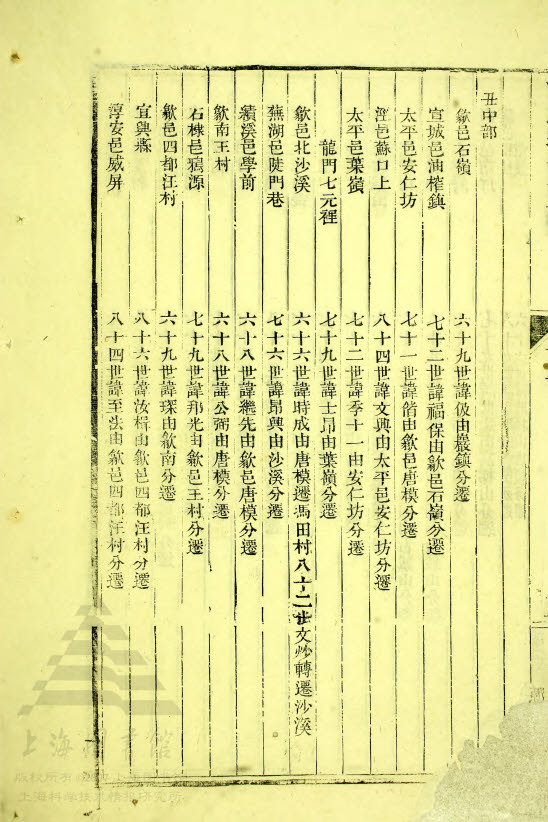 丑中部
歙邑石嶺 六十九世諱伋由巖鎮分遷
宣城邑油榨鎮 七十二世諱福保由歙邑石嶺分遷
太平邑安仁坊 七十一世諱偕由歙邑唐模分遷
涇邑蘇口上 八十四世諱文興由太平邑安仁坊分遷
太平邑葉嶺 七十二世諱季十一由安仁坊分遷
龍門七元裡 七十九世諱士昂由葉嶺分遷
歙邑北沙溪 六十六世諱時成由唐模遷馮田村八十二世文炒轉遷沙溪
蕪湖邑陡門巷 七十六世諱昂興由沙溪分遷
績溪邑學前 六十八世諱繼先由歙邑唐模分遷
歙南王村 六十八世諱公弼由唐模分遷
石棣邑鴉源 七十九世諱邦光由歙邑王村分遷
歙邑四都汪村 六十九世諱琛由歙南分遷
宜興縣 八十六世諱汝楫由歙邑四都汪村分遷
淳安邑威屏 八十四世諱至法由歙邑四都汪村分遷
上海圖書館
版權所有
上海科學技術情報研究所